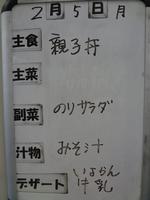 2月5日月
主食 親子丼
主菜
副菜 のりサラダ
汁物 みそ汁
デザート いよかん
牛乳